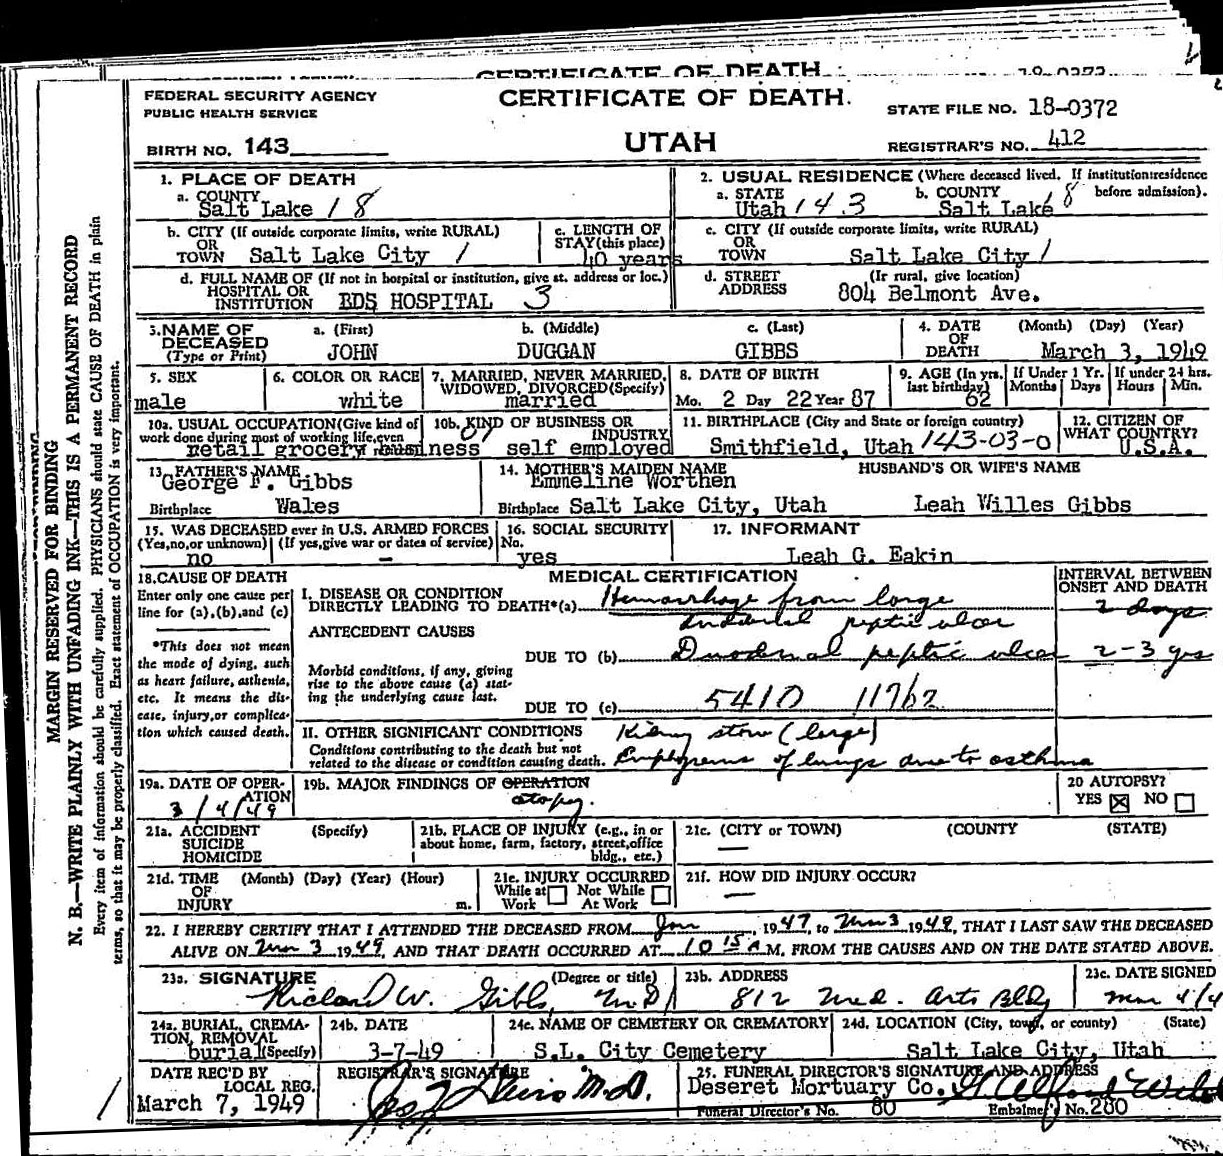 CERTIFICATE OF DEATH
18-0372
FEDERAL SECURITY AGENCY
PUBLIC HEALTH SERVICE
CERTIFICATE OF DEATH.
STATE FILE NO. 18-0372
BIRTH NO. 143
UTAH
REGISTRAR'S NO. 412
MARGIN RESERVED FOR BINDING
N. B.—WRITE PLAINLY WITH UNFADING INK—THIS IS A PERMANENT RECORD
Every item of information should be carefully supplied. PHYSICIANS should state CAUSE OF DEATH in plain
terms, so that it may be properly classified. Exact statement of OCCUPATION is very important.
1. PLACE OF DEATH
a. COUNTY
Salt Lake 18
2. USUAL RESIDENCE (Where deceased lived. If institution: residence before admission).
a. STATE
Utah 143
b. COUNTY
Salt Lake 18
b. CITY (If outside corporate limits, write RURAL)
OR
TOWN Salt Lake City 1
c. LENGTH OF
STAY (this place)
40 years
c. CITY (If outside corporate limits, write RURAL)
OR
TOWN Salt Lake City 1
d. FULL NAME OF (If not in hospital or institution, give st. address or loc.)
HOSPITAL OR
INSTITUTION EDS HOSPITAL 3
d. STREET
ADDRESS
(Ir rural, give location)
804 Belmont Ave.
3. NAME OF
DECEASED
(Type or Print)
a. (First)
JOHN
b. (Middle)
DUGGAN
c. (Last)
GIBBS
4. DATE
OF
DEATH
(Month) (Day) (Year)
March 3, 1949
5. SEX
male
6. COLOR OR RACE
white
7. MARRIED, NEVER MARRIED,
WIDOWED, DIVORCED (Specify)
married
8. DATE OF BIRTH
Mo. 2 Day 22 Year 87
9. AGE (In yrs.
last birthday)
62
If Under 1 Yr.
Months Days
If under 24 hrs.
Hours Min.
10a. USUAL OCCUPATION (Give kind of
work done during most of working life, even
retail grocery business
10b. KIND OF BUSINESS OR
INDUSTRY
self employed
11. BIRTHPLACE (City and State or foreign country)
Smithfield, Utah 143-03-0
12. CITIZEN OF
WHAT COUNTRY?
U.S.A.
13. FATHER'S NAME
George F. Gibbs
Birthplace Wales
14. MOTHER'S MAIDEN NAME
Emmeline Worthen
Birthplace Salt Lake City, Utah
HUSBAND'S OR WIFE'S NAME
Leah Willes Gibbs
15. WAS DECEASED ever in U.S. ARMED FORCES
(Yes, no, or unknown) (If yes, give war or dates of service)
no —
16. SOCIAL SECURITY
No.
yes
17. INFORMANT
Leah G. Eakin
18. CAUSE OF DEATH
Enter only one cause per
line for (a), (b), and (c)
*This does not mean
the mode of dying, such
as heart failure, asthenia,
etc. It means the dis-
ease, injury, or complica-
tion which caused death.
MEDICAL CERTIFICATION
INTERVAL BETWEEN
ONSET AND DEATH
I. DISEASE OR CONDITION
DIRECTLY LEADING TO DEATH*(a) Hemorrhage from large
duodenal peptic ulcer
2 days
ANTECEDENT CAUSES
DUE TO (b) Duodenal peptic ulcer 2-3 yrs
Morbid conditions, if any, giving
rise to the above cause (a) stat-
ing the underlying cause last.
DUE TO (c) 5410 11762
II. OTHER SIGNIFICANT CONDITIONS
Conditions contributing to the death but not
related to the disease or condition causing death.
Kidney stone (large)
Emphysema of lungs due to asthma
19a. DATE OF OPER-
ATION
3/4/49
19b. MAJOR FINDINGS OF OPERATION
20 AUTOPSY?
YES ☒ NO ☐
21a. ACCIDENT
SUICIDE
HOMICIDE
(Specify)
21b. PLACE OF INJURY (e.g., in or
about home, farm, factory, street, office
bldg., etc.)
21c. (CITY or TOWN) (COUNTY (STATE)
—
21d. TIME
OF
INJURY
(Month) (Day) (Year) (Hour)
m.
21e. INJURY OCCURRED
While at Work ☐ Not While At Work ☐
21f. HOW DID INJURY OCCUR?
—
22. I HEREBY CERTIFY THAT I ATTENDED THE DECEASED FROM Jan, 1947, to Mar 3 1949, THAT I LAST SAW THE DECEASED
ALIVE ON Mar 3 1949, AND THAT DEATH OCCURRED AT 10 15 A M. FROM THE CAUSES AND ON THE DATE STATED ABOVE.
23a. SIGNATURE (Degree or title)
Richard W. Gibbs, M.D.
23b. ADDRESS
812 Med. Arts Bldg
23c. DATE SIGNED
Mar 4/4
24a. BURIAL, CREMA-
TION, REMOVAL
burial (Specify)
24b. DATE
3-7-49
24c. NAME OF CEMETERY OR CREMATORY
S.L. City Cemetery
24d. LOCATION (City, town, or county) (State)
Salt Lake City, Utah
DATE REC'D BY
LOCAL REG.
March 7, 1949
REGISTRAR'S SIGNATURE
M.D.
25. FUNERAL DIRECTOR'S SIGNATURE AND ADDRESS
Deseret Mortuary Co.
Funeral Director's No. 80 Embalmer's No. 280